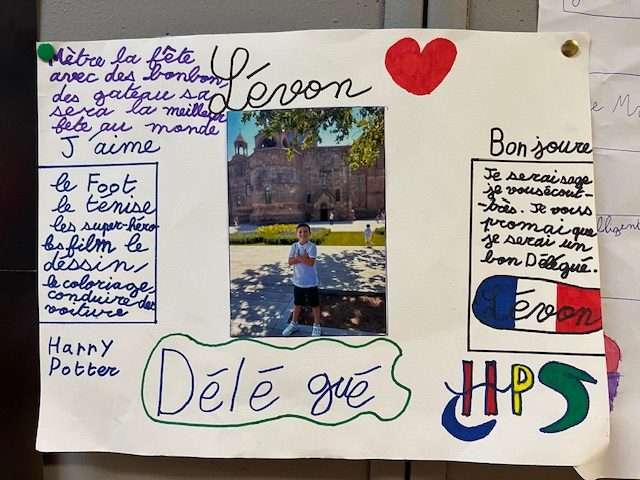 Mètre la fête
avec des bonbon,
des gateau sa
sera la meilleur
fête au monde
Lévon
J'aime
le Foot
le ténise
les super-héro
les film le
dessin,
le coloriage,
conduire des
voiture
Harry
Potter
Délégué
Bonjoure
Je serai sage
je vousécout-
-brès. Je vous
promai que
je serai un
bon Délégué.
Lévon
HPS